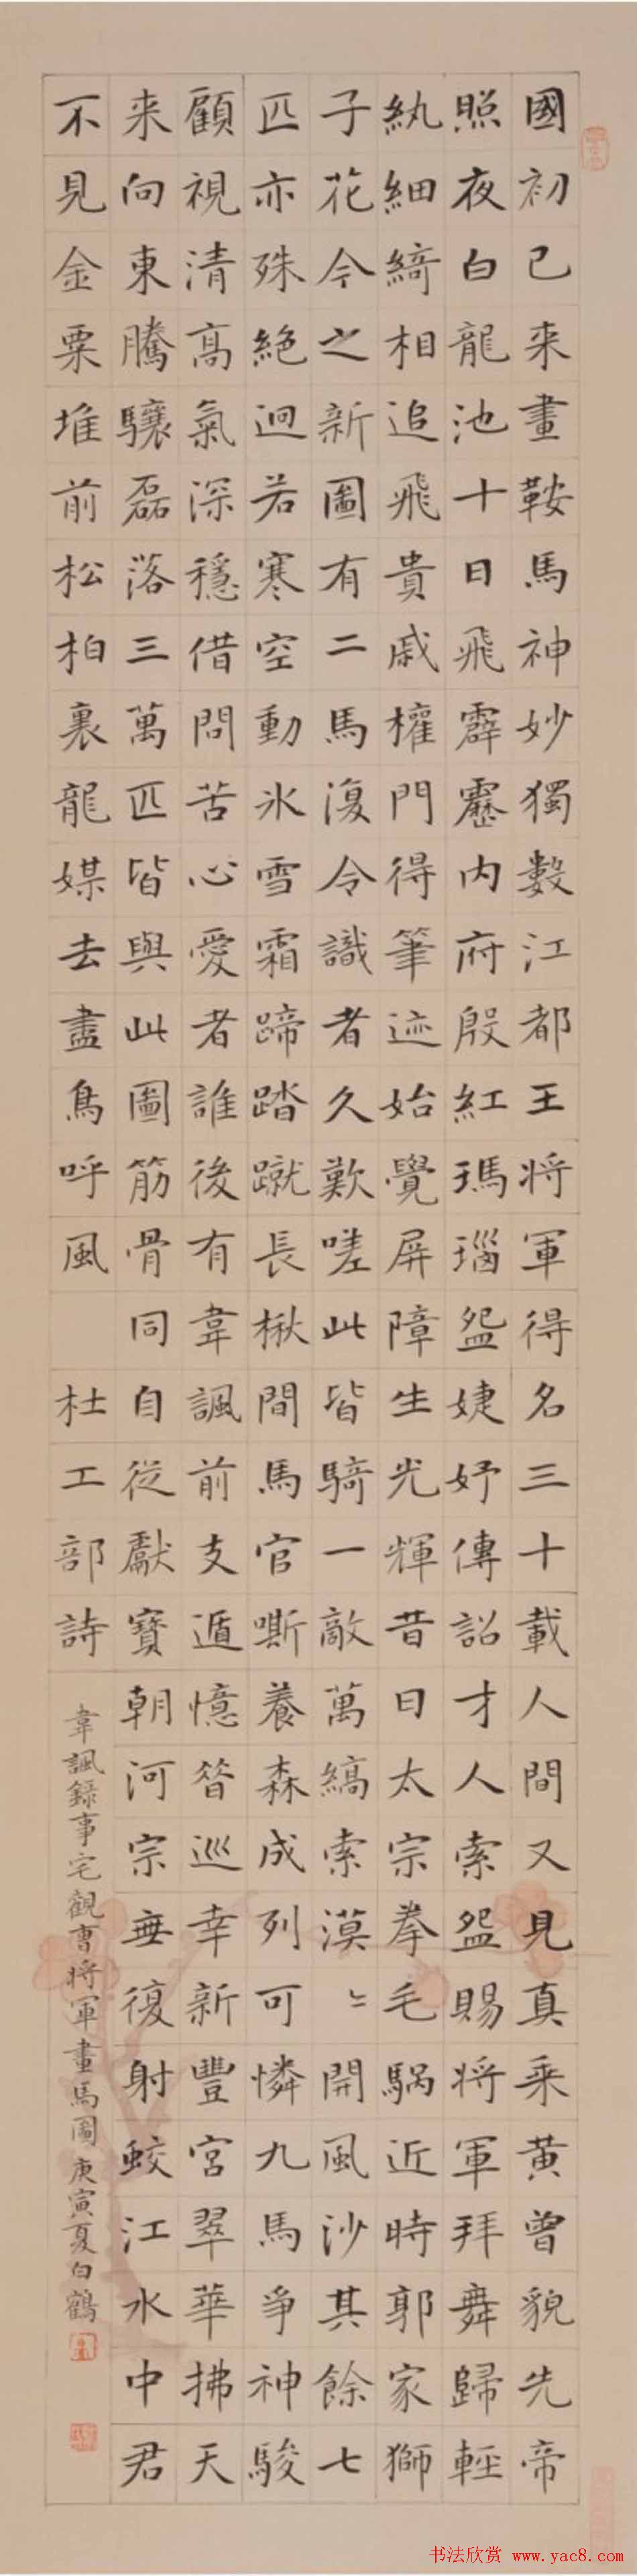 國初已來畫鞍馬神妙獨數江都王將軍得名三十載人間又見真乘黃曾貌先帝
照夜白龍池十日飛霹靂內府殷紅瑪瑙盌婕妤傳詔才人索盌賜將軍拜舞歸輕
紈細綺相追飛貴戚權門得筆迹始覺屏障生光輝昔日太宗拳毛騧近時郭家獅
子花今之新圖有二馬復令識者久歎嗟此皆騎一敵萬縞索漠〻開風沙其餘七
匹亦殊絕迥若寒空動冰雪霜蹄踏蹴長楸間馬官嘶養森成列可憐九馬爭神駿
顧視清高氣深穩借問苦心愛者誰後有韋諷前支遁憶昔巡幸新豐宮翠華拂天
来向東騰驤磊落三萬匹皆與此圖筋骨同自從獻寶朝河宗無復射蛟江水中君
不見金粟堆前松柏裏龍媒去盡鳥呼風 杜工部詩
韋諷錄事宅觀曹將軍畫馬圖庚寅夏白鶴
书法欣赏 www.yac8.com